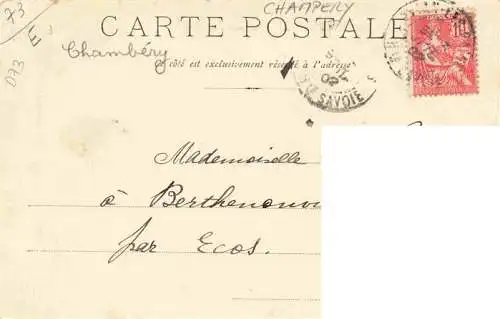 73
CHAMPERY
CARTE POSTALE
E
Chambéry
D73
Ce côté est exclusivement réservé à l'adresse
02
SAVOIE
10
Mademoiselle
à Berthenonv
par Ecos.